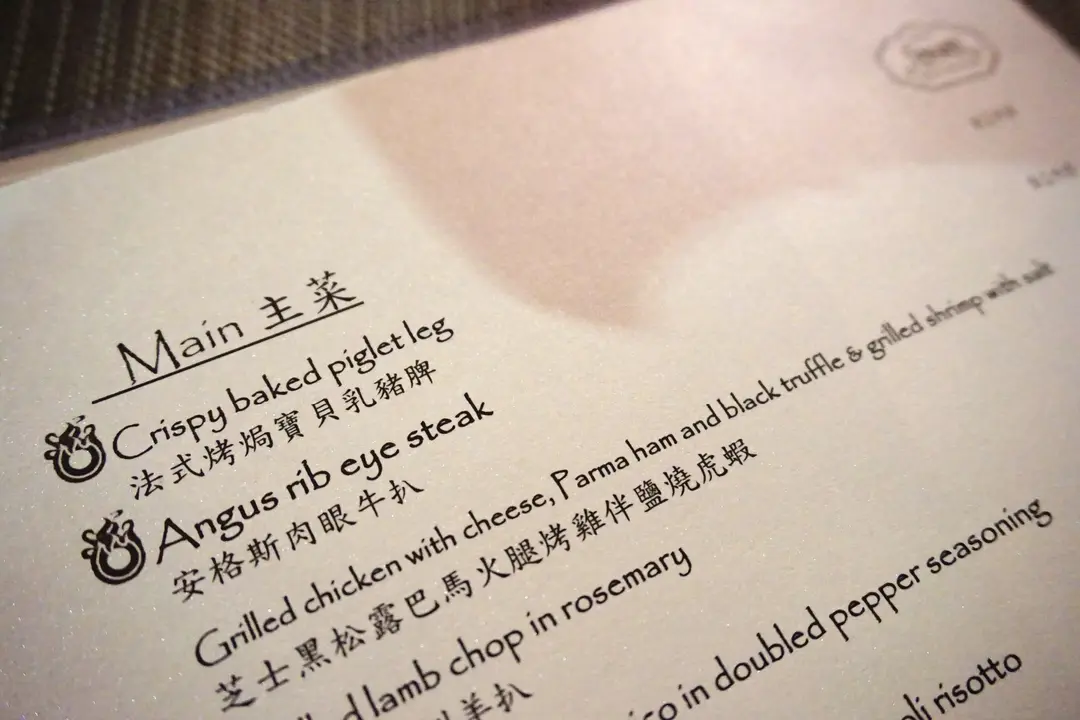 Main 主菜
Crispy baked piglet leg
法式烤焗寶貝乳豬脾
Angus rib eye steak
安格斯肉眼牛扒
Grilled chicken with cheese, Parma ham and black truffle & grilled shrimp with salt
芝士黑松露巴馬火腿烤雞伴鹽燒虎蝦
lamb chop in rosemary
羊扒
in doubled pepper seasoning
risotto